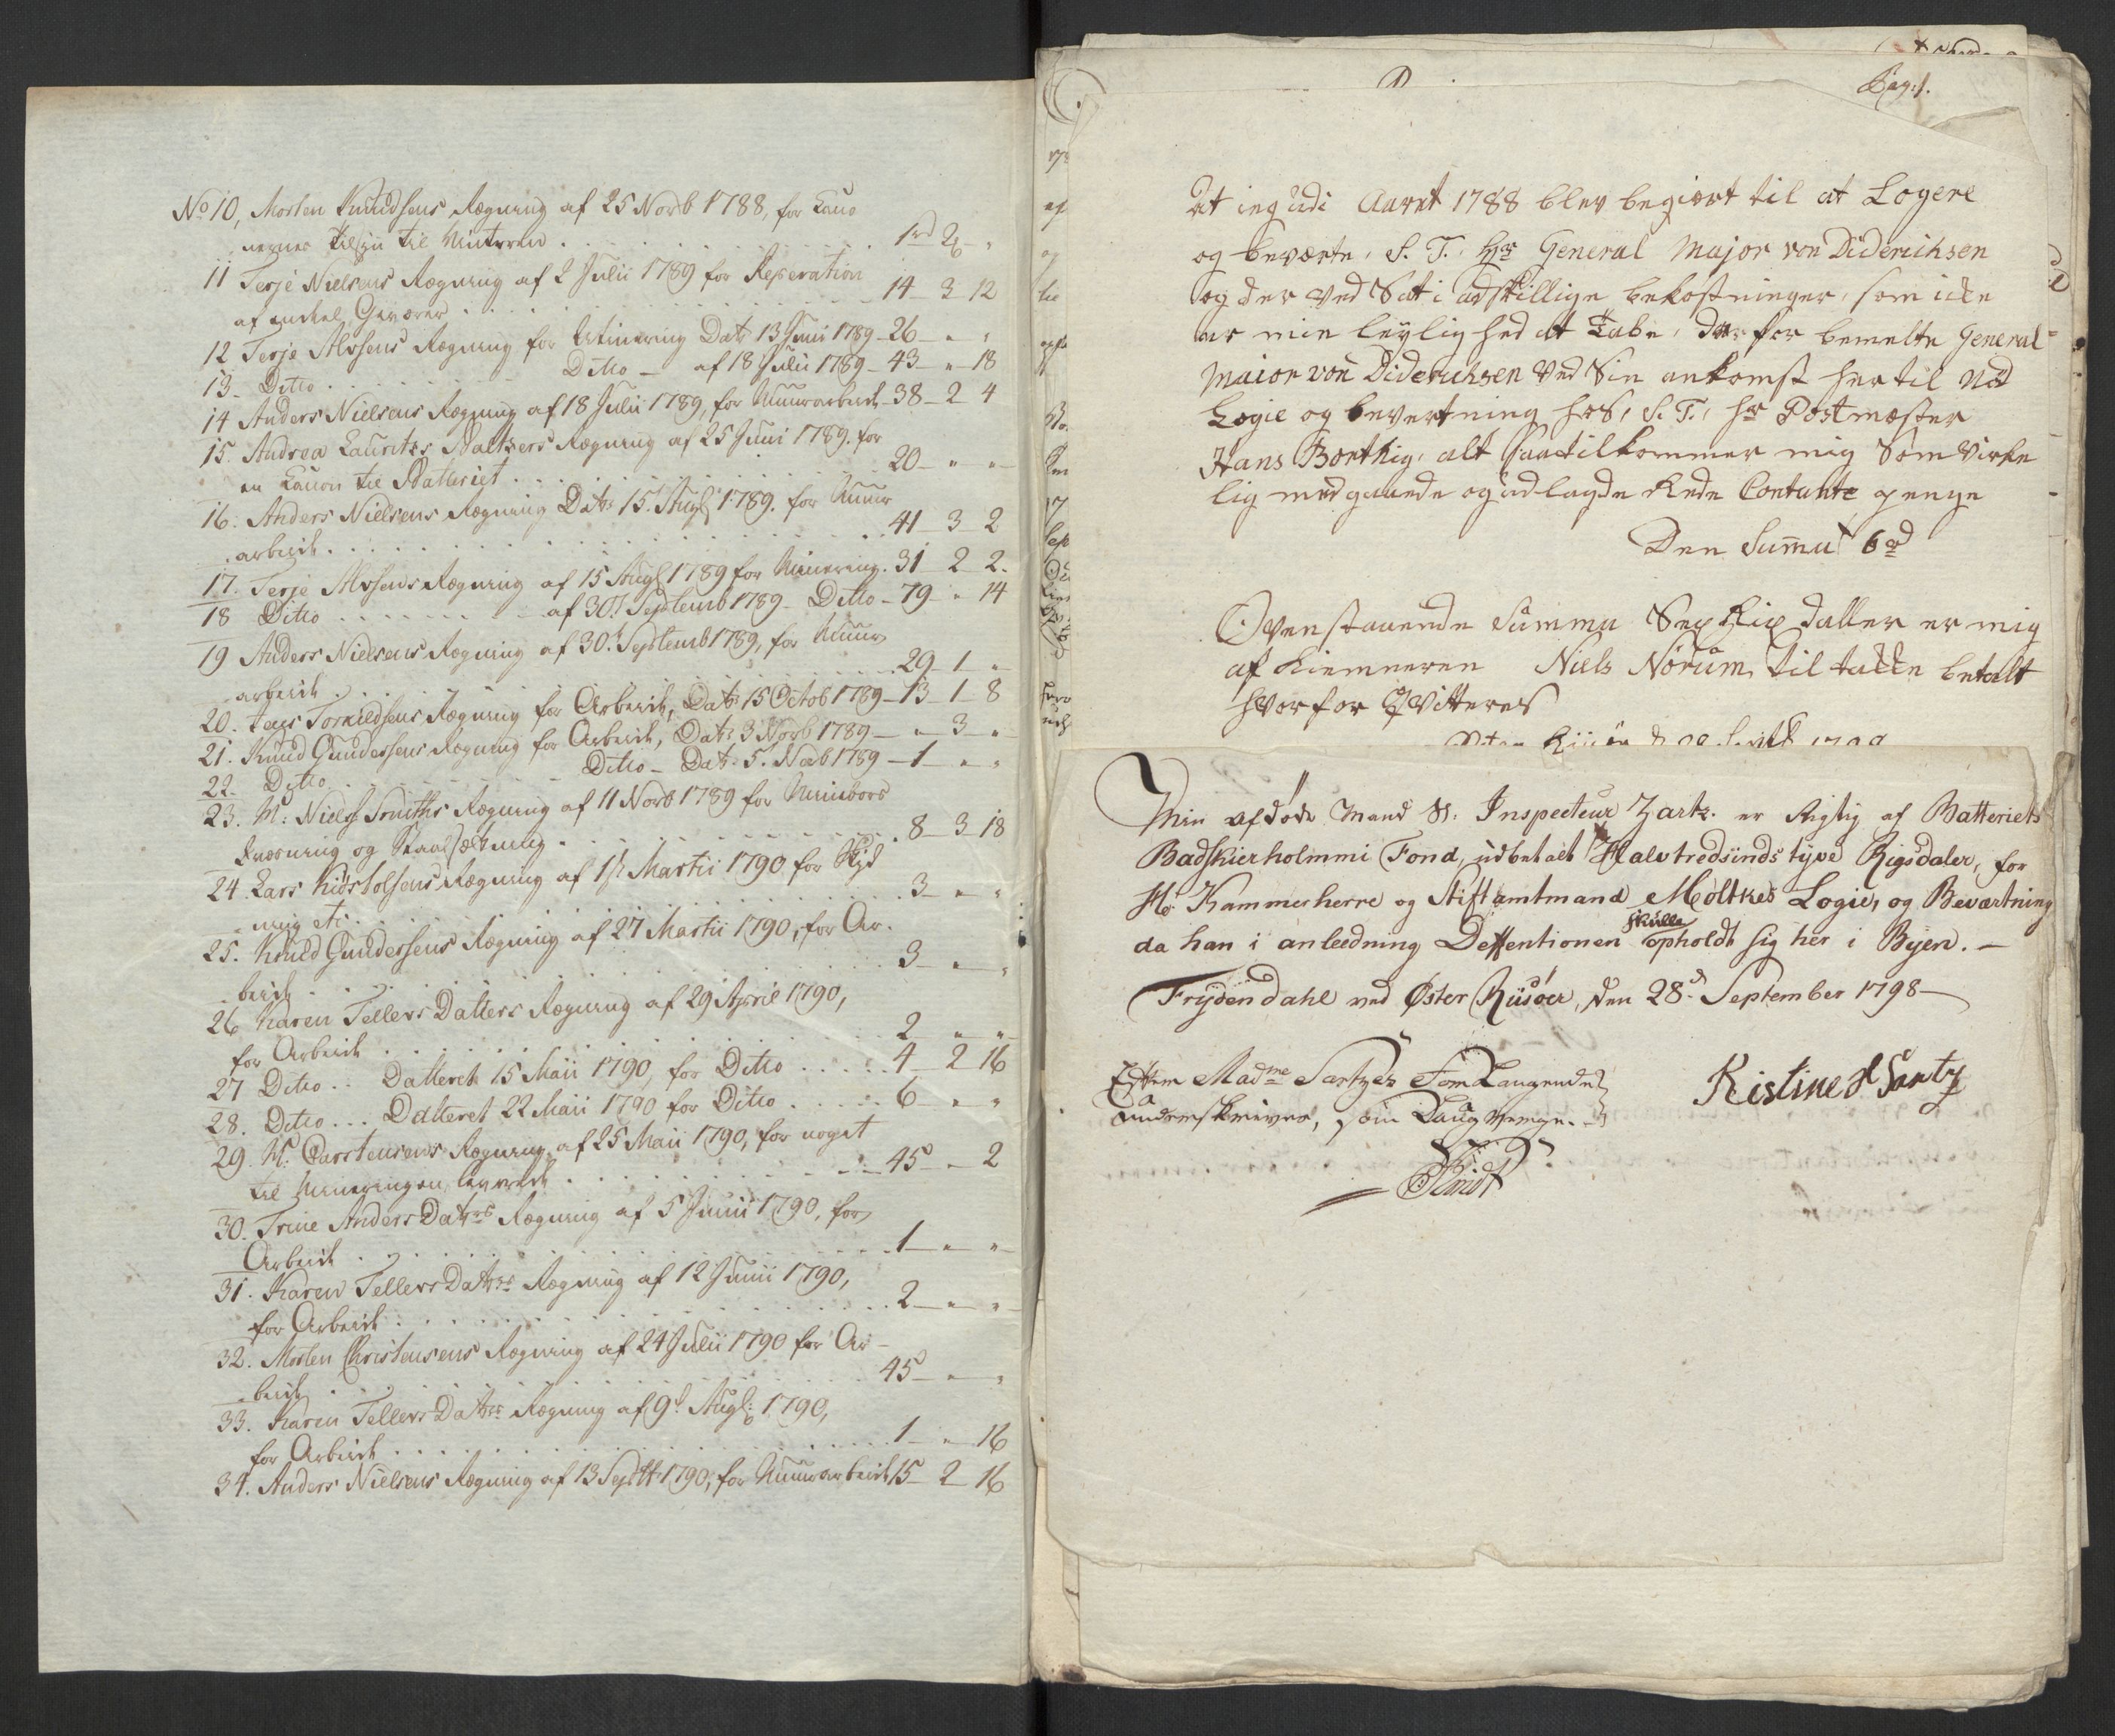 No 10, Morten Knudsens Regning af 25 Novb 1788, for Cano
nernes tilsyn til Vinteren . . . 1rd 2 "
11 Terje Nielsens Regning af 2 Julii 1789 for Reperation
af endeel Geværer . . . 14 - 3 12
12 Terje Alfsens Regning for Minering Datr 13 Juni 1789 - 26 - " "
13 - Ditto . . . Ditto - af 18 Julii 1789 - 43 - " - 18
14 Anders Nielsens Regning af 18 Julii 1789, for Muurarbeide - 38 - 2 4
15. Andrea Lauritz Baltzers Regning af 25 Juni 1789. for
en Canon til Batteriet . . . 20 - " "
16. Anders Nielsens Regning Datr 15 Augl 1789. for Muur
arbeide . . . 41 - 3 2
17. Terje Alfsens Regning af 15 Augl 1789 for Minering. 31 2 2.
18 Ditto . . . af 30t Septemb 1789 - Ditto - 79 - " 14
19 Anders Nielsens Regning af 30t Septemb 1789, for Muur
arbeide . . . 29 - 1 "
20. Jens Torkildsens Regning for Arbeide, Datr 15 Octob 1789 - 13 - 1 - 8
21. Knud Gundersens Regning for Arbeide, Datr 3 Novb 1789 - " 3 "
22. Ditto . . . Ditto - Datr 5. Novb 1789 - 1 " "
23. M: Niels Smiths Regning af 11 Novb 1789 for Minebors
hvæsning og Staalsætning . . . 8 - 3 - 18
24. Lars Kidstolsens Regning af 1st Martii 1790 for Skyd
ning etc . . . 3 - " "
25. Knud Gundersens Regning af 27 Martii 1790, for Ar.
beide . . . 3 - " "
26 Karen Tellevs Datters Regning af 29 April 1790,
for Arbeide . . . 2 " "
27 Ditto . . Datteret 15 Maii 1790, for Ditto . . . 4 2 16
28. Ditto . . . Datteret 22 Maii 1790 for Ditto . . . 6 - " "
29. M: Carstensens Regning af 25 Maii 1790, for noget
til Mineringen leveret . . . 45 - " 2
30. Trine Anders Datrs Regning af 5 Junii 1790, for
Arbeide . . . 1 - " "
31. Karen Tellevs Datrs Regning af 12 Junii 1790,
for Arbeide . . . 2 - " "
32. Morten Christensens Regning af 24 Julii 1790 for Ar-
beide . . . 45 - " "
33. Karen Tellevs Datrs Regning af 9t Augl: 1790,
for Arbeide . . . 1 - " 16
34. Anders Nielsens Regning af 13 Septbr 1790, for Muurarbeide 15 - 2 16
Pag: 1.
At ieg udi Aaret 1788 blev begiert til at Logere
og beværte, S. T. Hr General Major von Diderichsen
og der ved Sat i adskillige bekostninger, som icke
er min leylighed at Tabe, der for bemelte General-
Maior von Diderichsen ved Sin ankomst her til Nød
Logie og bevertning hos, S. T. hr Postmæster
Hans Borthig, alt saa tilkommer mig Som virke
lig medgaaende og udlagde Rede Contante penge
Den Summa 6rd
Ovenstaaende Summa Sex Rix daller er mig
af Kiemneren Niels Nörum til takke betalt
hvorfor Qvitteres
Min afdøde Mand Sl. Inspecteur Zartz. er Rigtig af Batteriets
Badskierholmmi Fond, udbetalt Halvtredsinds tyve Rigsdaler, for
Hr Kammerherre og Stiftamtmand Moltkes Logie, og Beværtning
skulle
da han i anleedning Deffentionen opholdt sig her i Byen. -
Frydendahl ved Øster Riisøer, den 28d September 1798 -
Efter Madme Sartzes Forlangende
underskriver, som Laugverge. -
Kistine Sl Sartz
Schmidt